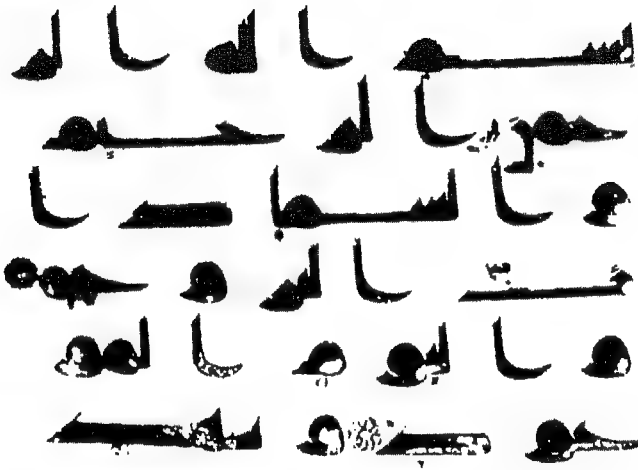 بسم الله الر
حمن الرحيم
والسما ذا
ت البروج
واليوم المو
عود وشا